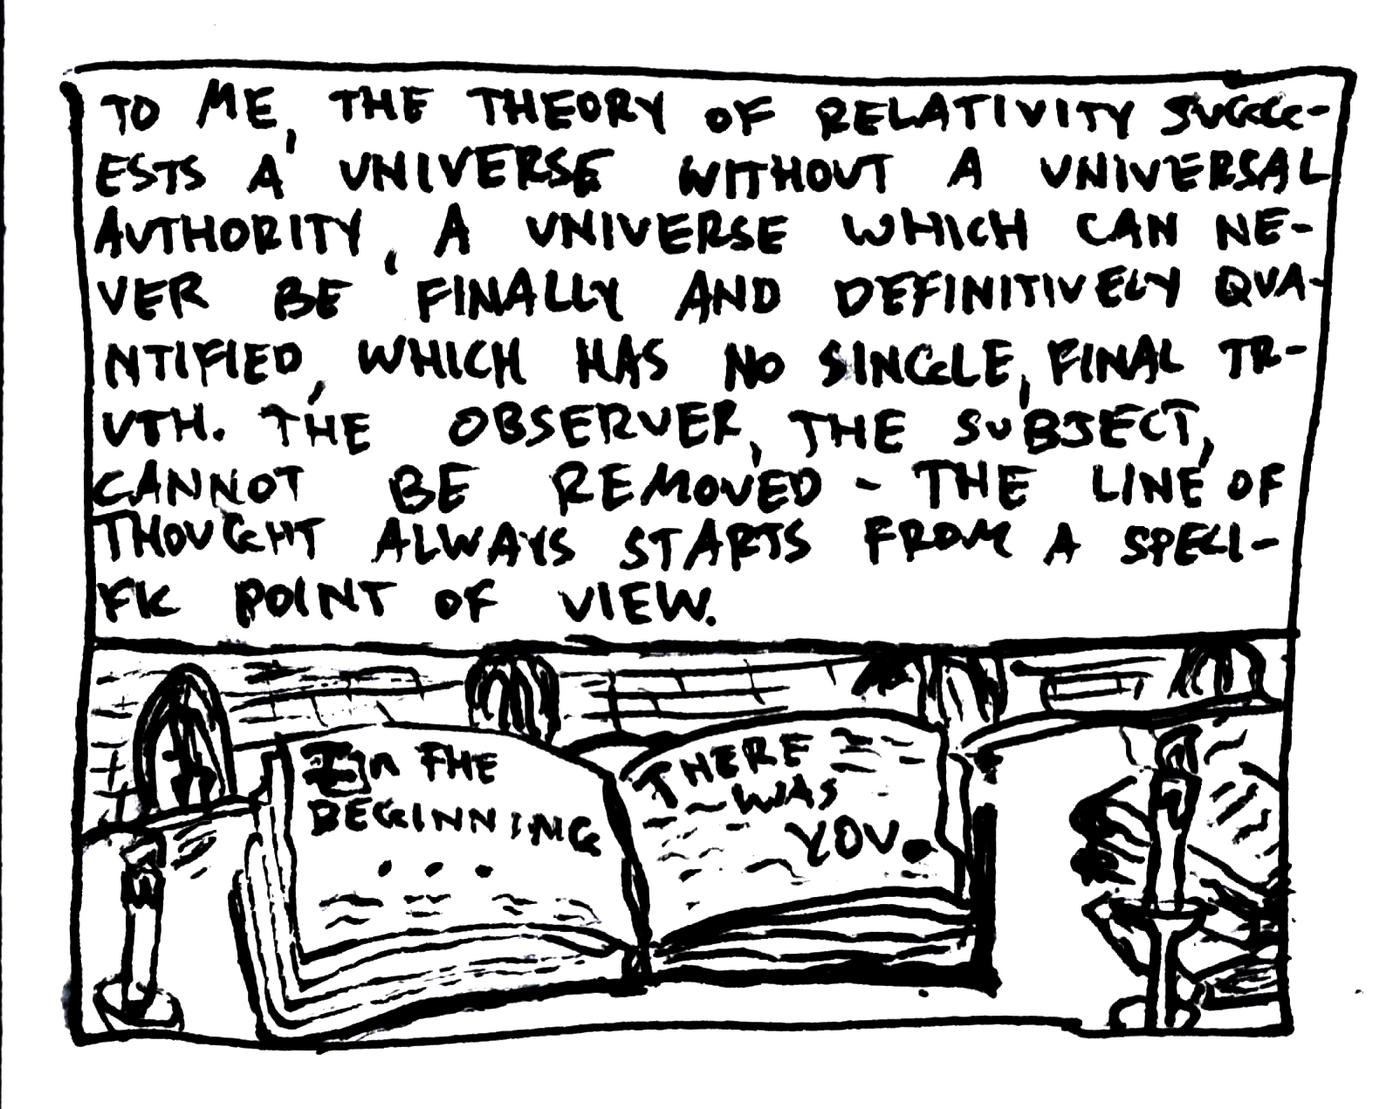 TO ME, THE THEORY OF RELATIVITY SUGG-
ESTS A UNIVERSE WITHOUT A UNIVERSAL
AUTHORITY, A UNIVERSE WHICH CAN NE-
VER BE FINALLY AND DEFINITIVELY QUA-
NTIFIED, WHICH HAS NO SINGLE, FINAL TR-
UTH. THE OBSERVER, THE SUBJECT,
CANNOT BE REMOVED - THE LINE OF
THOUGHT ALWAYS STARTS FROM A SPECI-
FIC POINT OF VIEW.
In THE
BEGINNING
...
THERE
WAS
YOU.